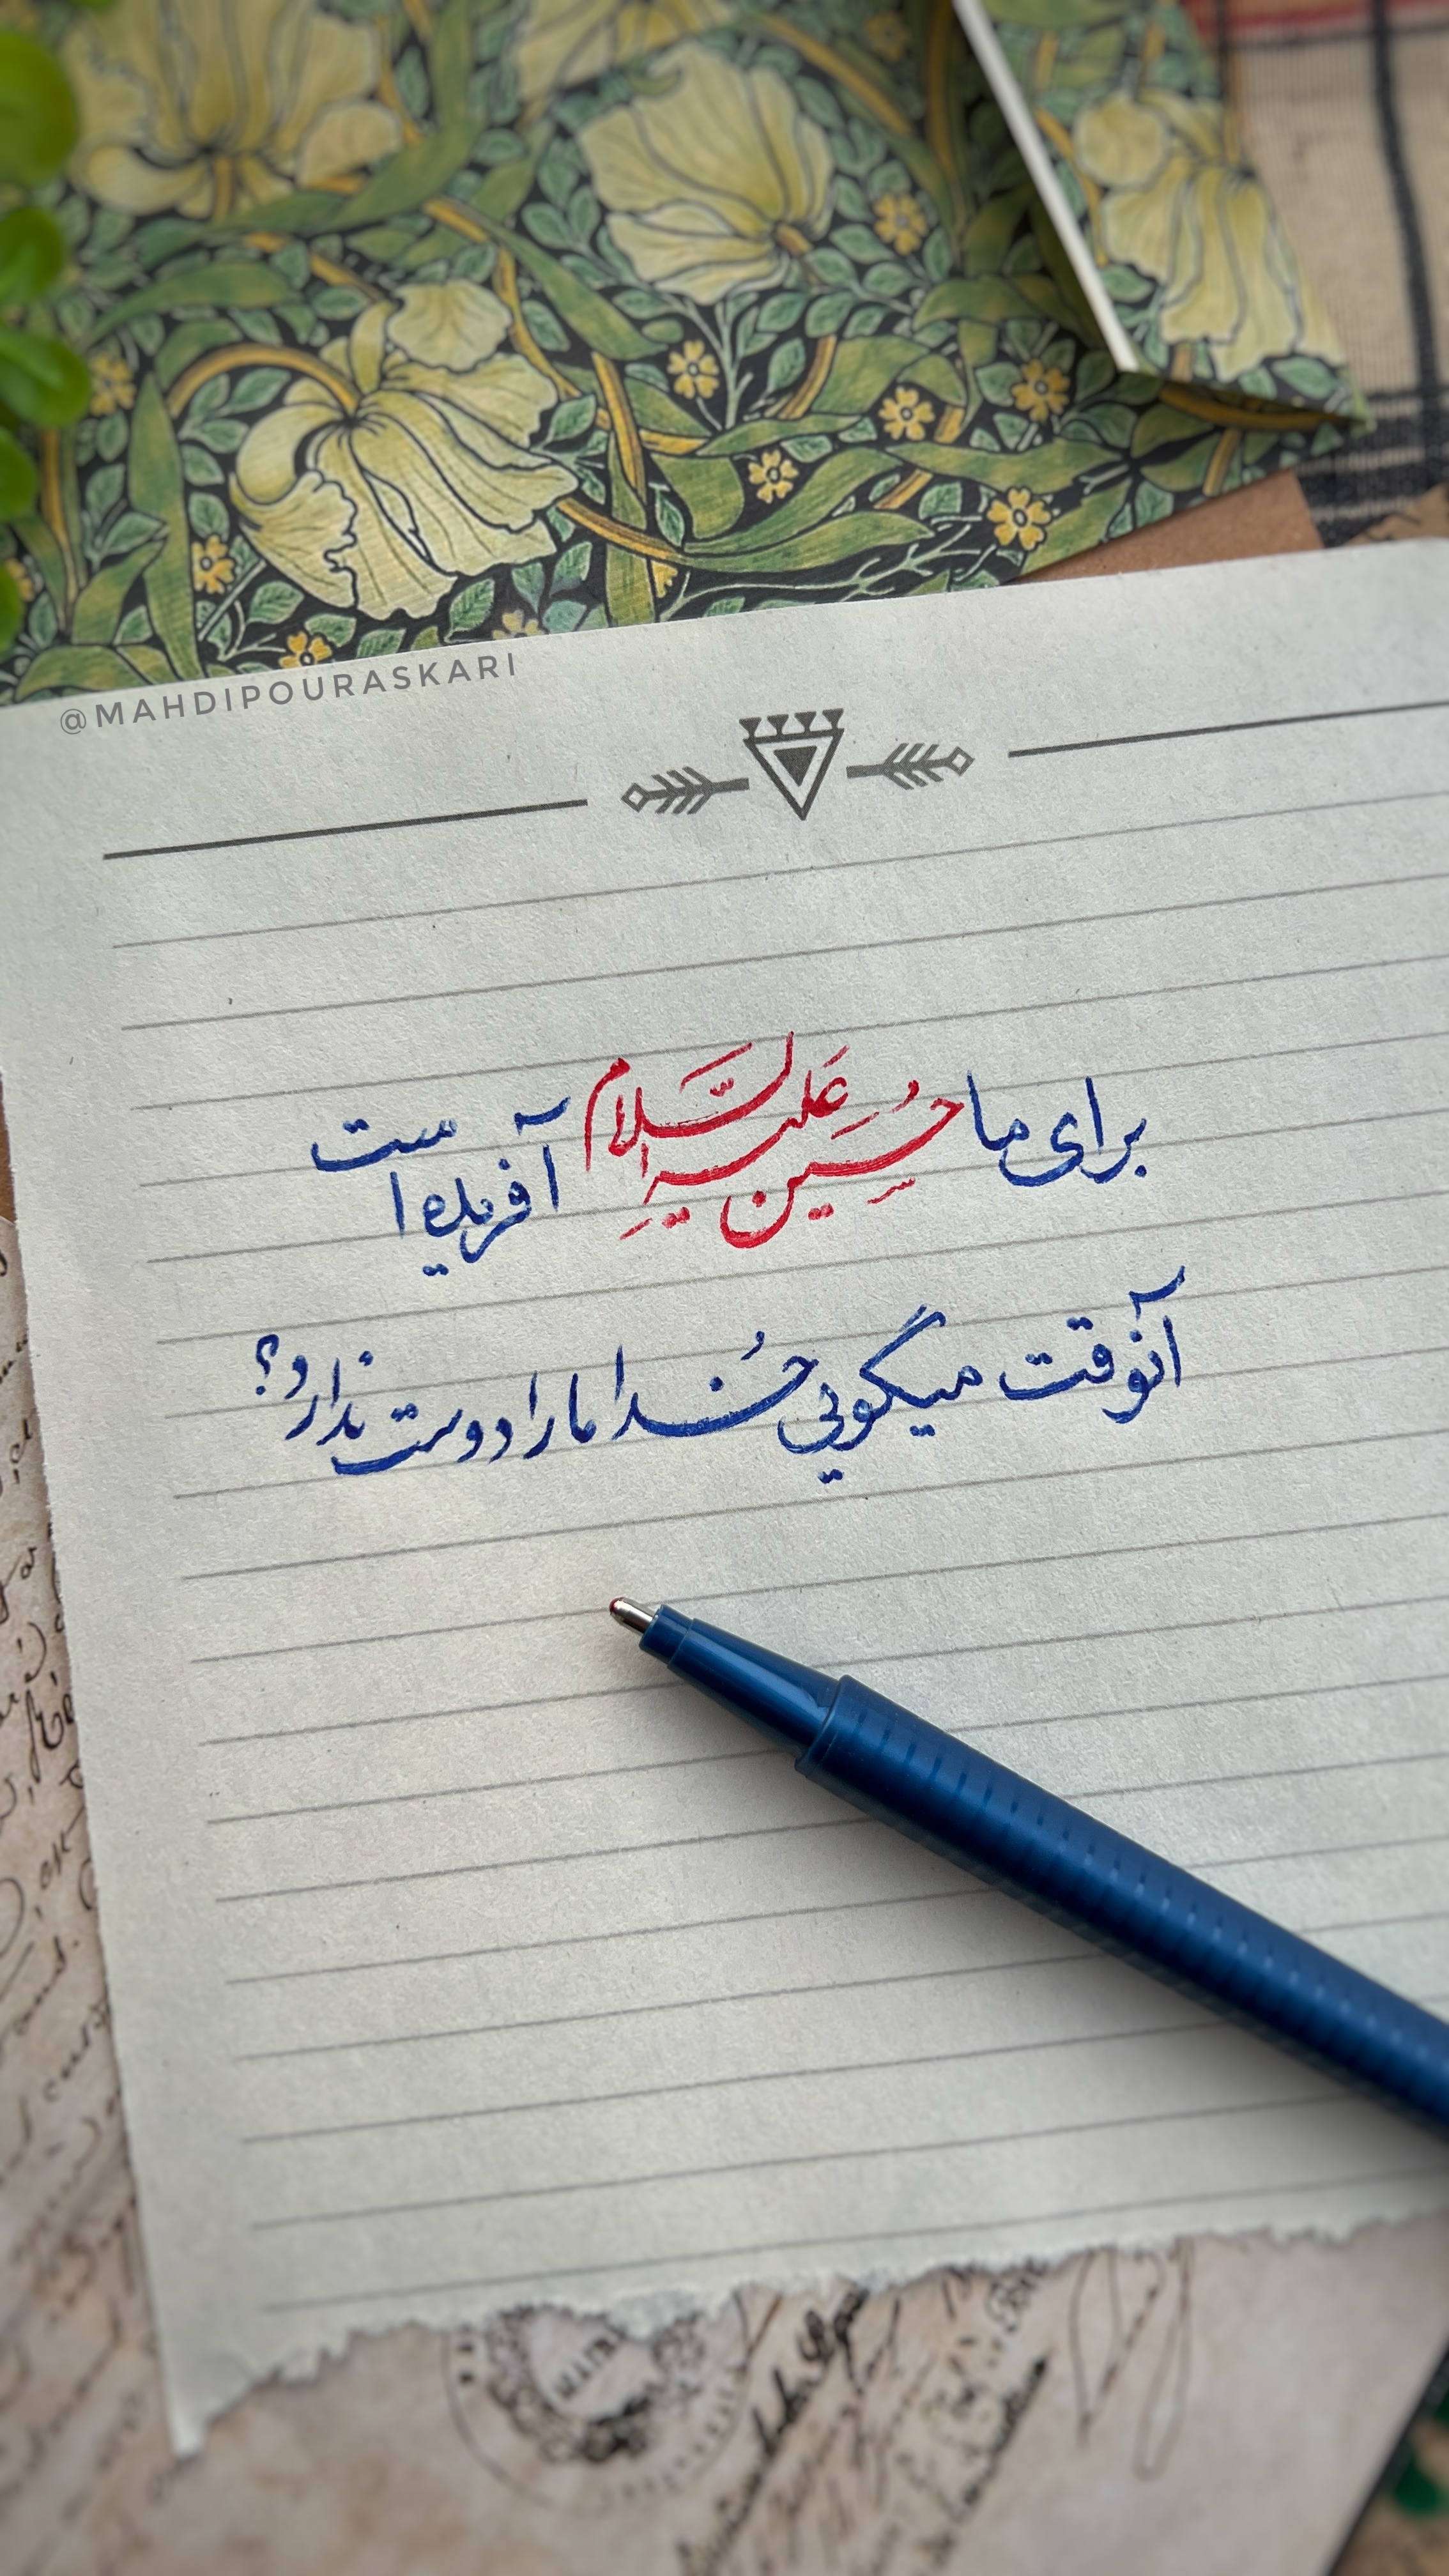 @MAHDIPOURASKARI
برای ما حُسِین عَلیهِ السَّلام آفریده است
آنوقت میگویی خُدا ما را دوست ندارد؟